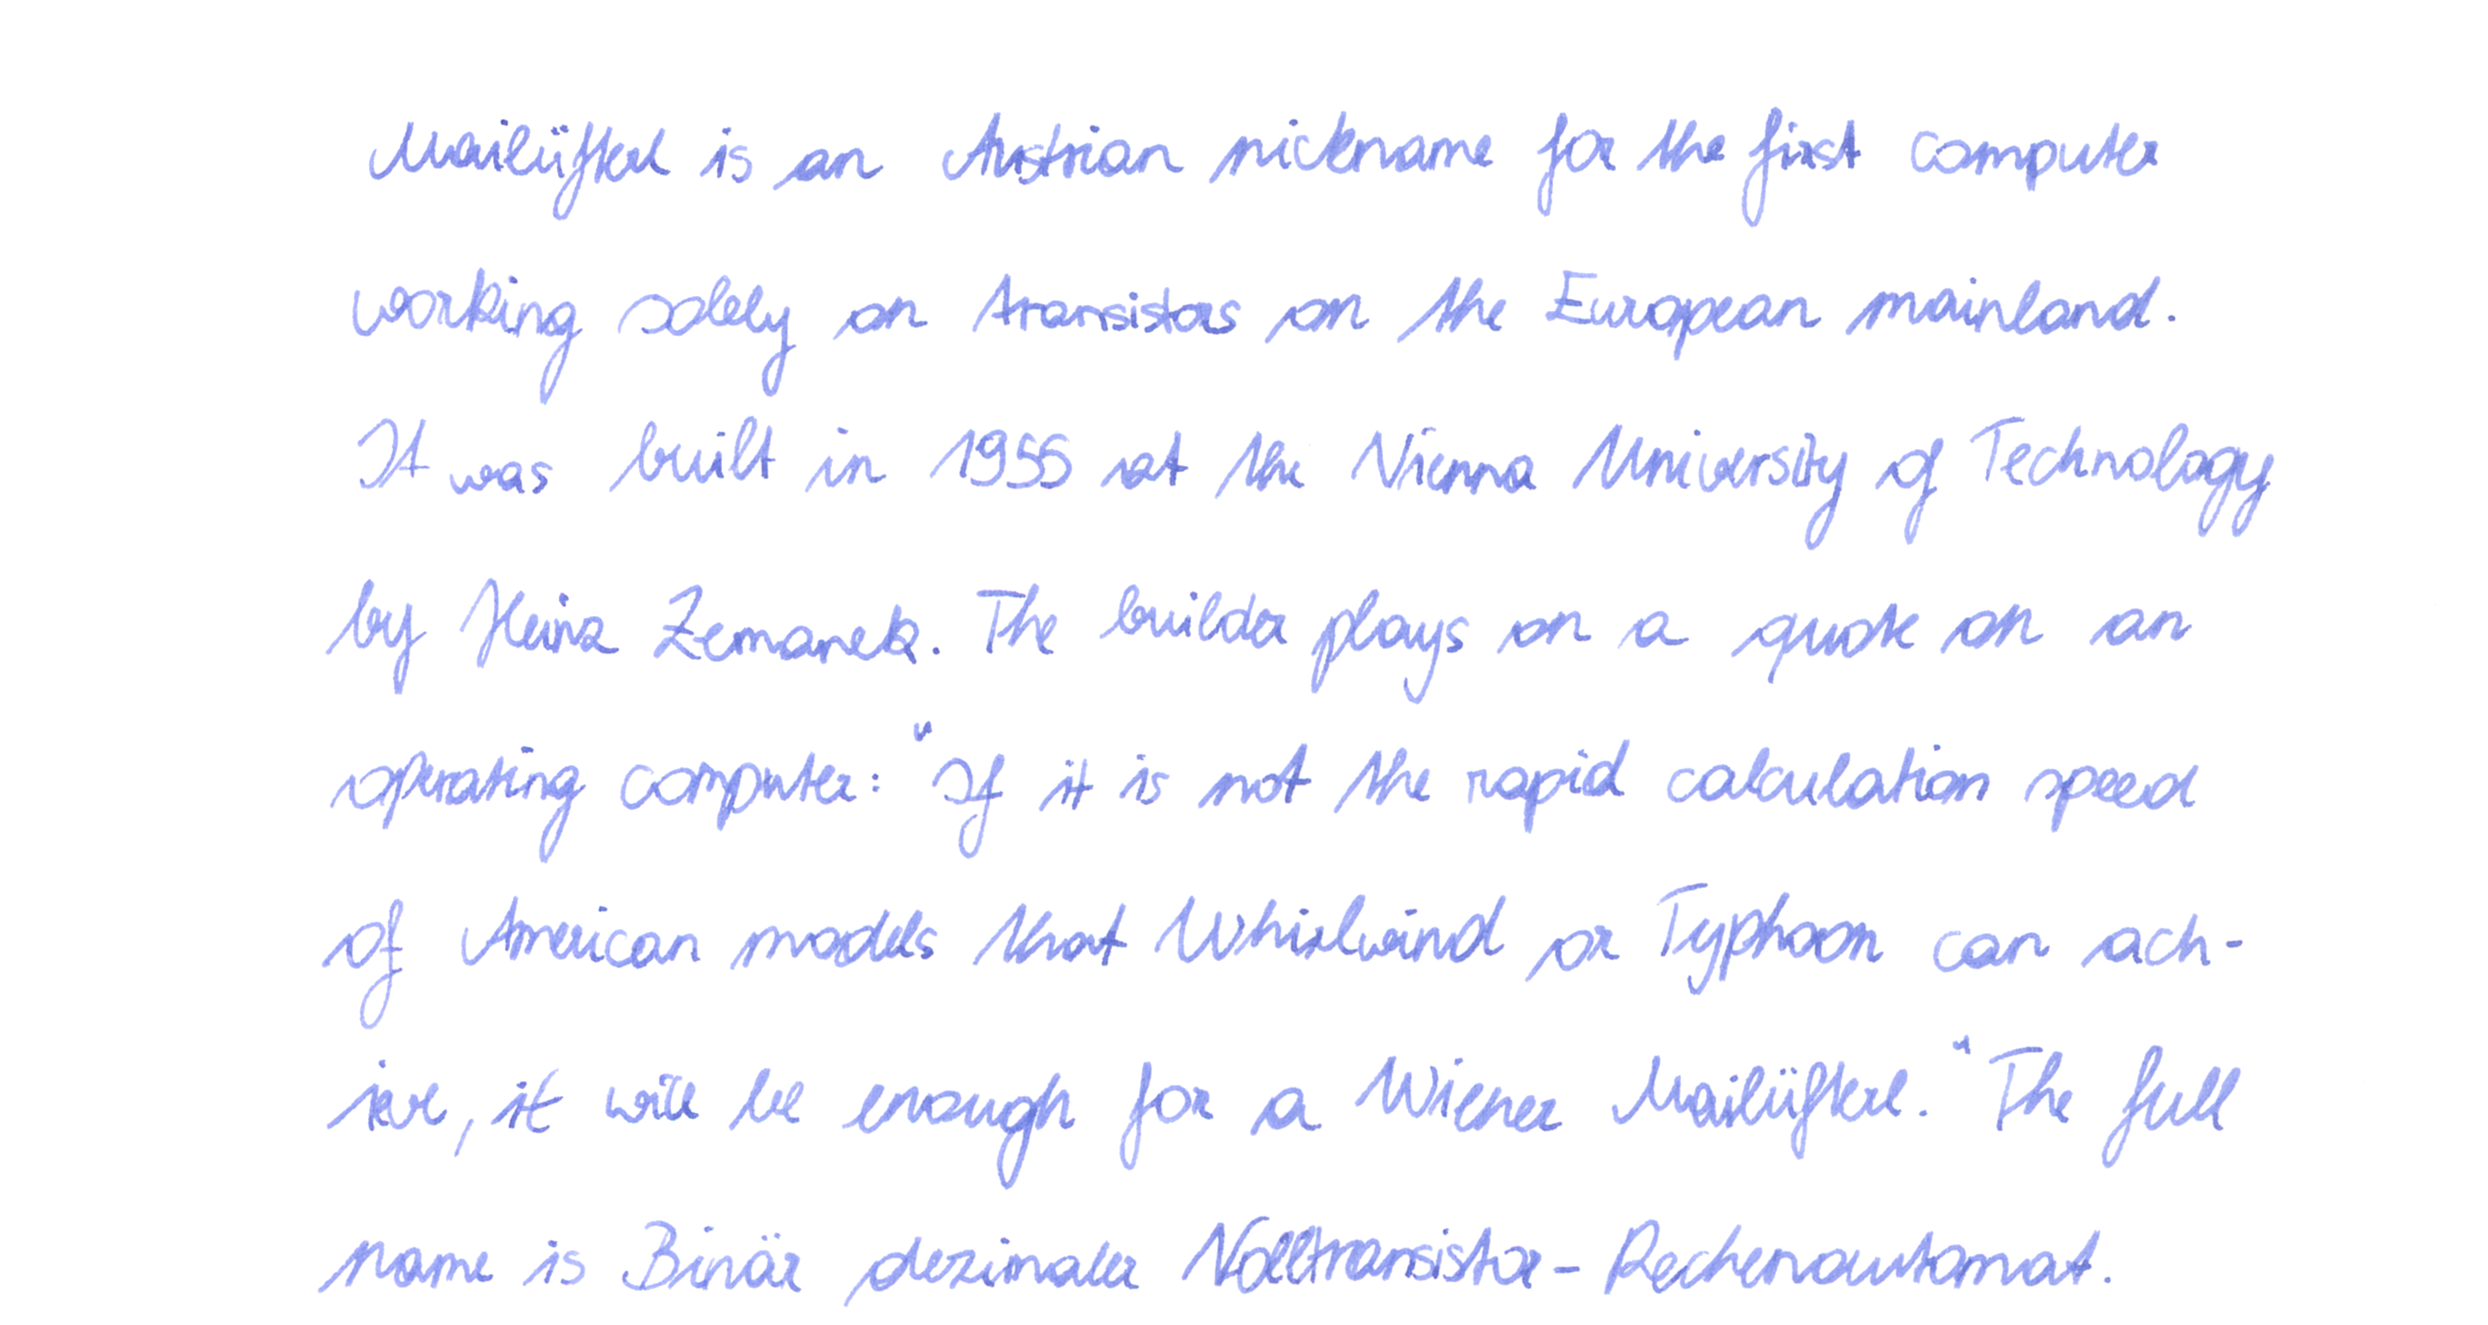 Mailüfterl is an Austrian nickname for the first computer
working solely on transistors on the European mainland.
It was built in 1955 at the Vienna University of Technology
by Heinz Zemanek. The builder plays on a quote on an
operating computer: "If it is not the rapid calculation speed
of American models that Whirlwind or Typhoon can ach-
ieve, it will be enough for a Wiener Mailüfterl." The full
name is Binär dezimaler Volltransistor-Rechenautomat.